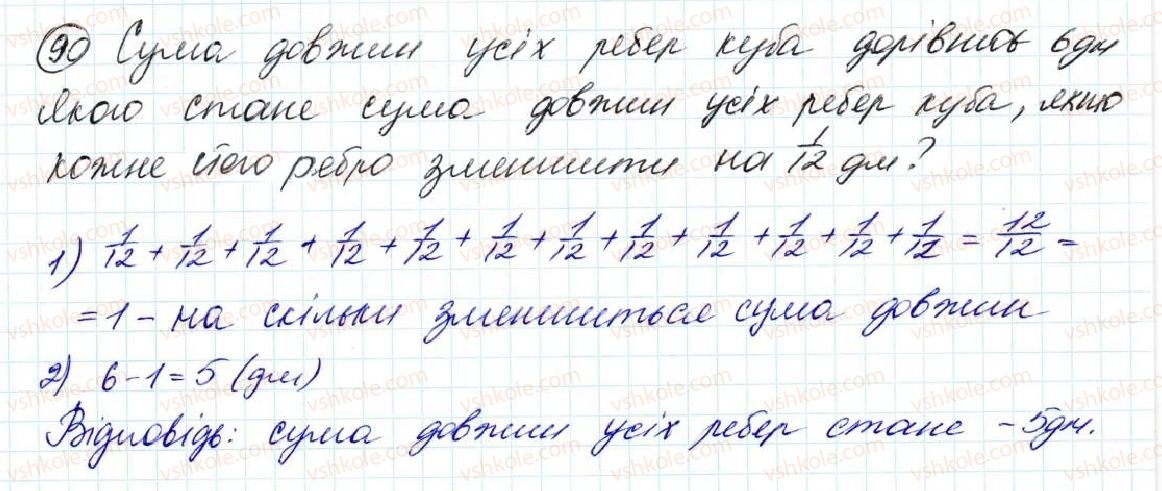 90 Сума довжин усіх ребер куба дорівнює 6дм
Якого стане сума довжин усіх ребер куба, якщо
кожне його ребро зменшити на 1/12 дм?
1) 1/12 + 1/12 + 1/12 + 1/12 + 1/12 + 1/12 + 1/12 + 1/12 + 1/12 + 1/12 + 1/12 + 1/12 = 12/12 =
= 1 - на скільки зменшиться сума довжин
2) 6 - 1 = 5 (дм)
Відповідь: сума довжин усіх ребер стане - 5дм.